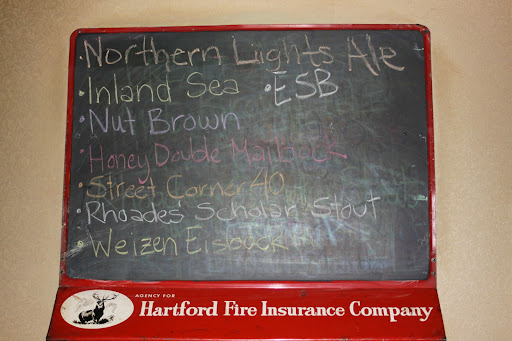 Northern Liights Ale
• Inland Sea • ESB
• Nut Brown
• Honey Double Maibock
• Street Corner 40
• Rhoades Scholar Stout
• Weizen Eisbock
AGENCY FOR
Hartford Fire Insurance Company